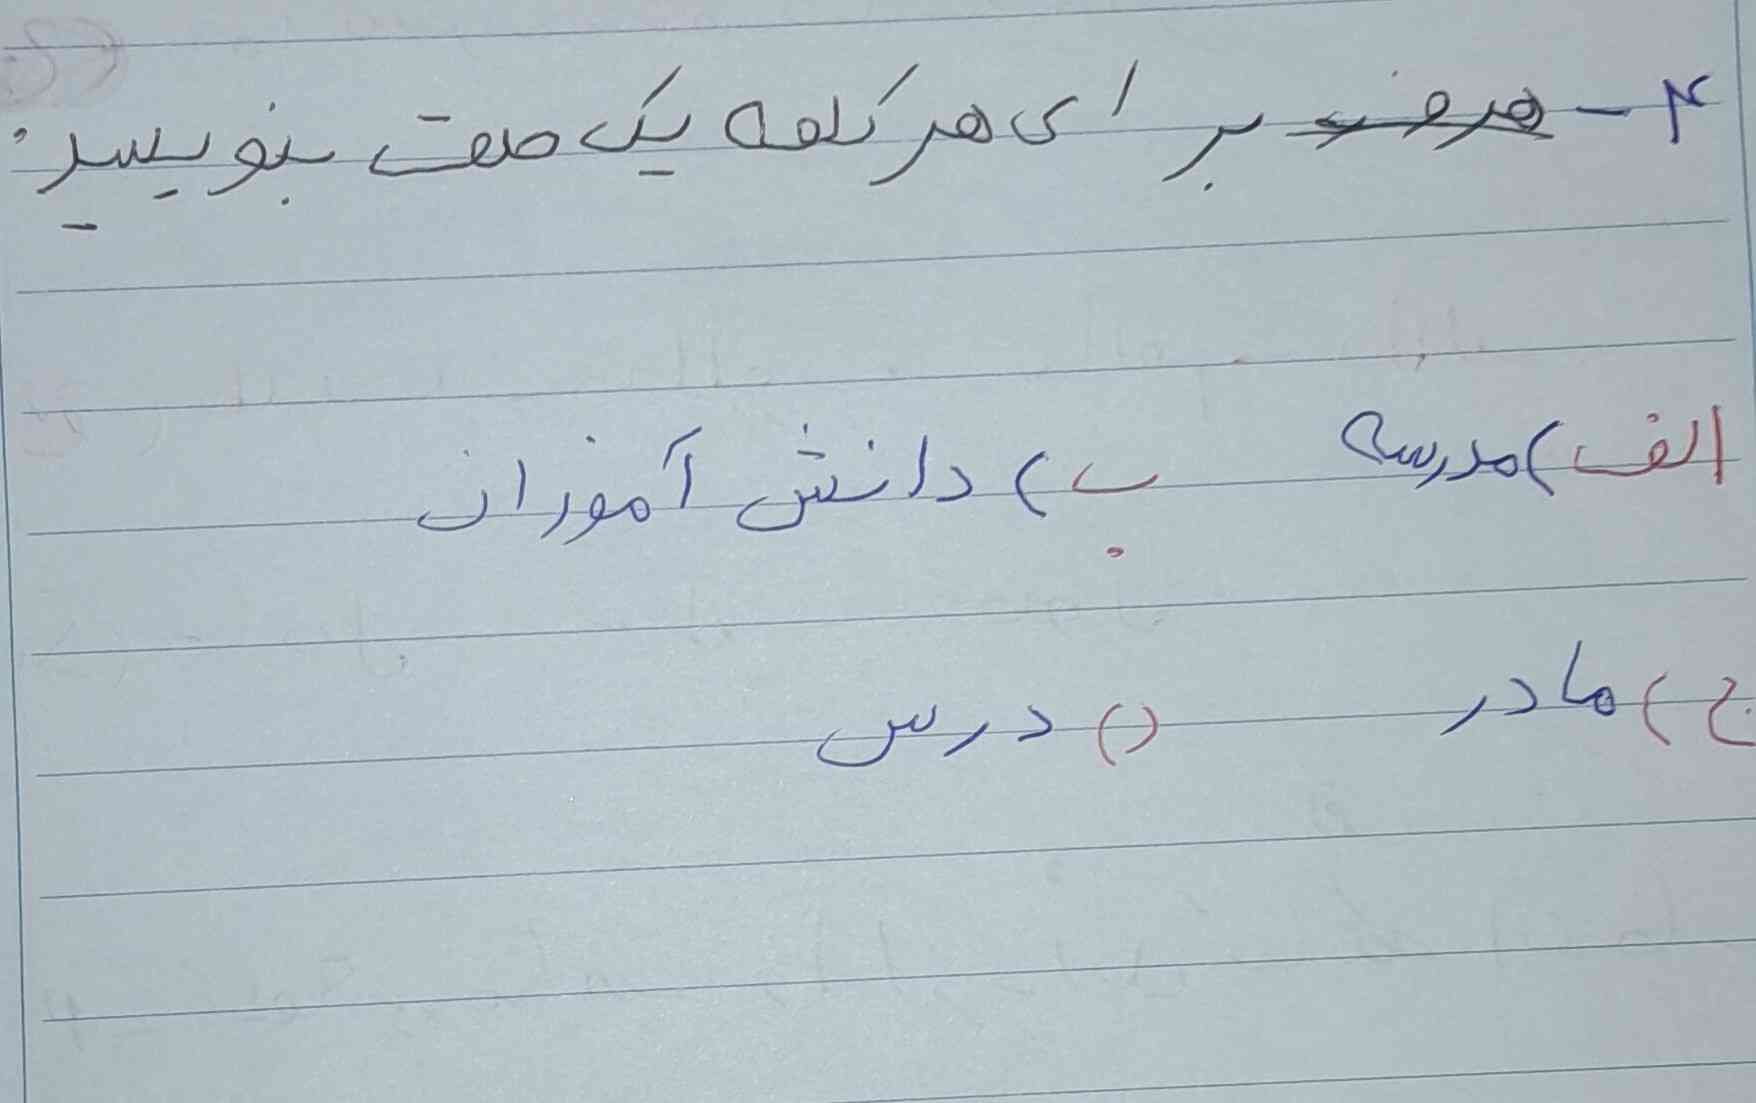 ۴- برای هر کلمه یک صفت بنویسید:
الف) مدرسه ب) دانش آموزان
ج) مادر د) درس